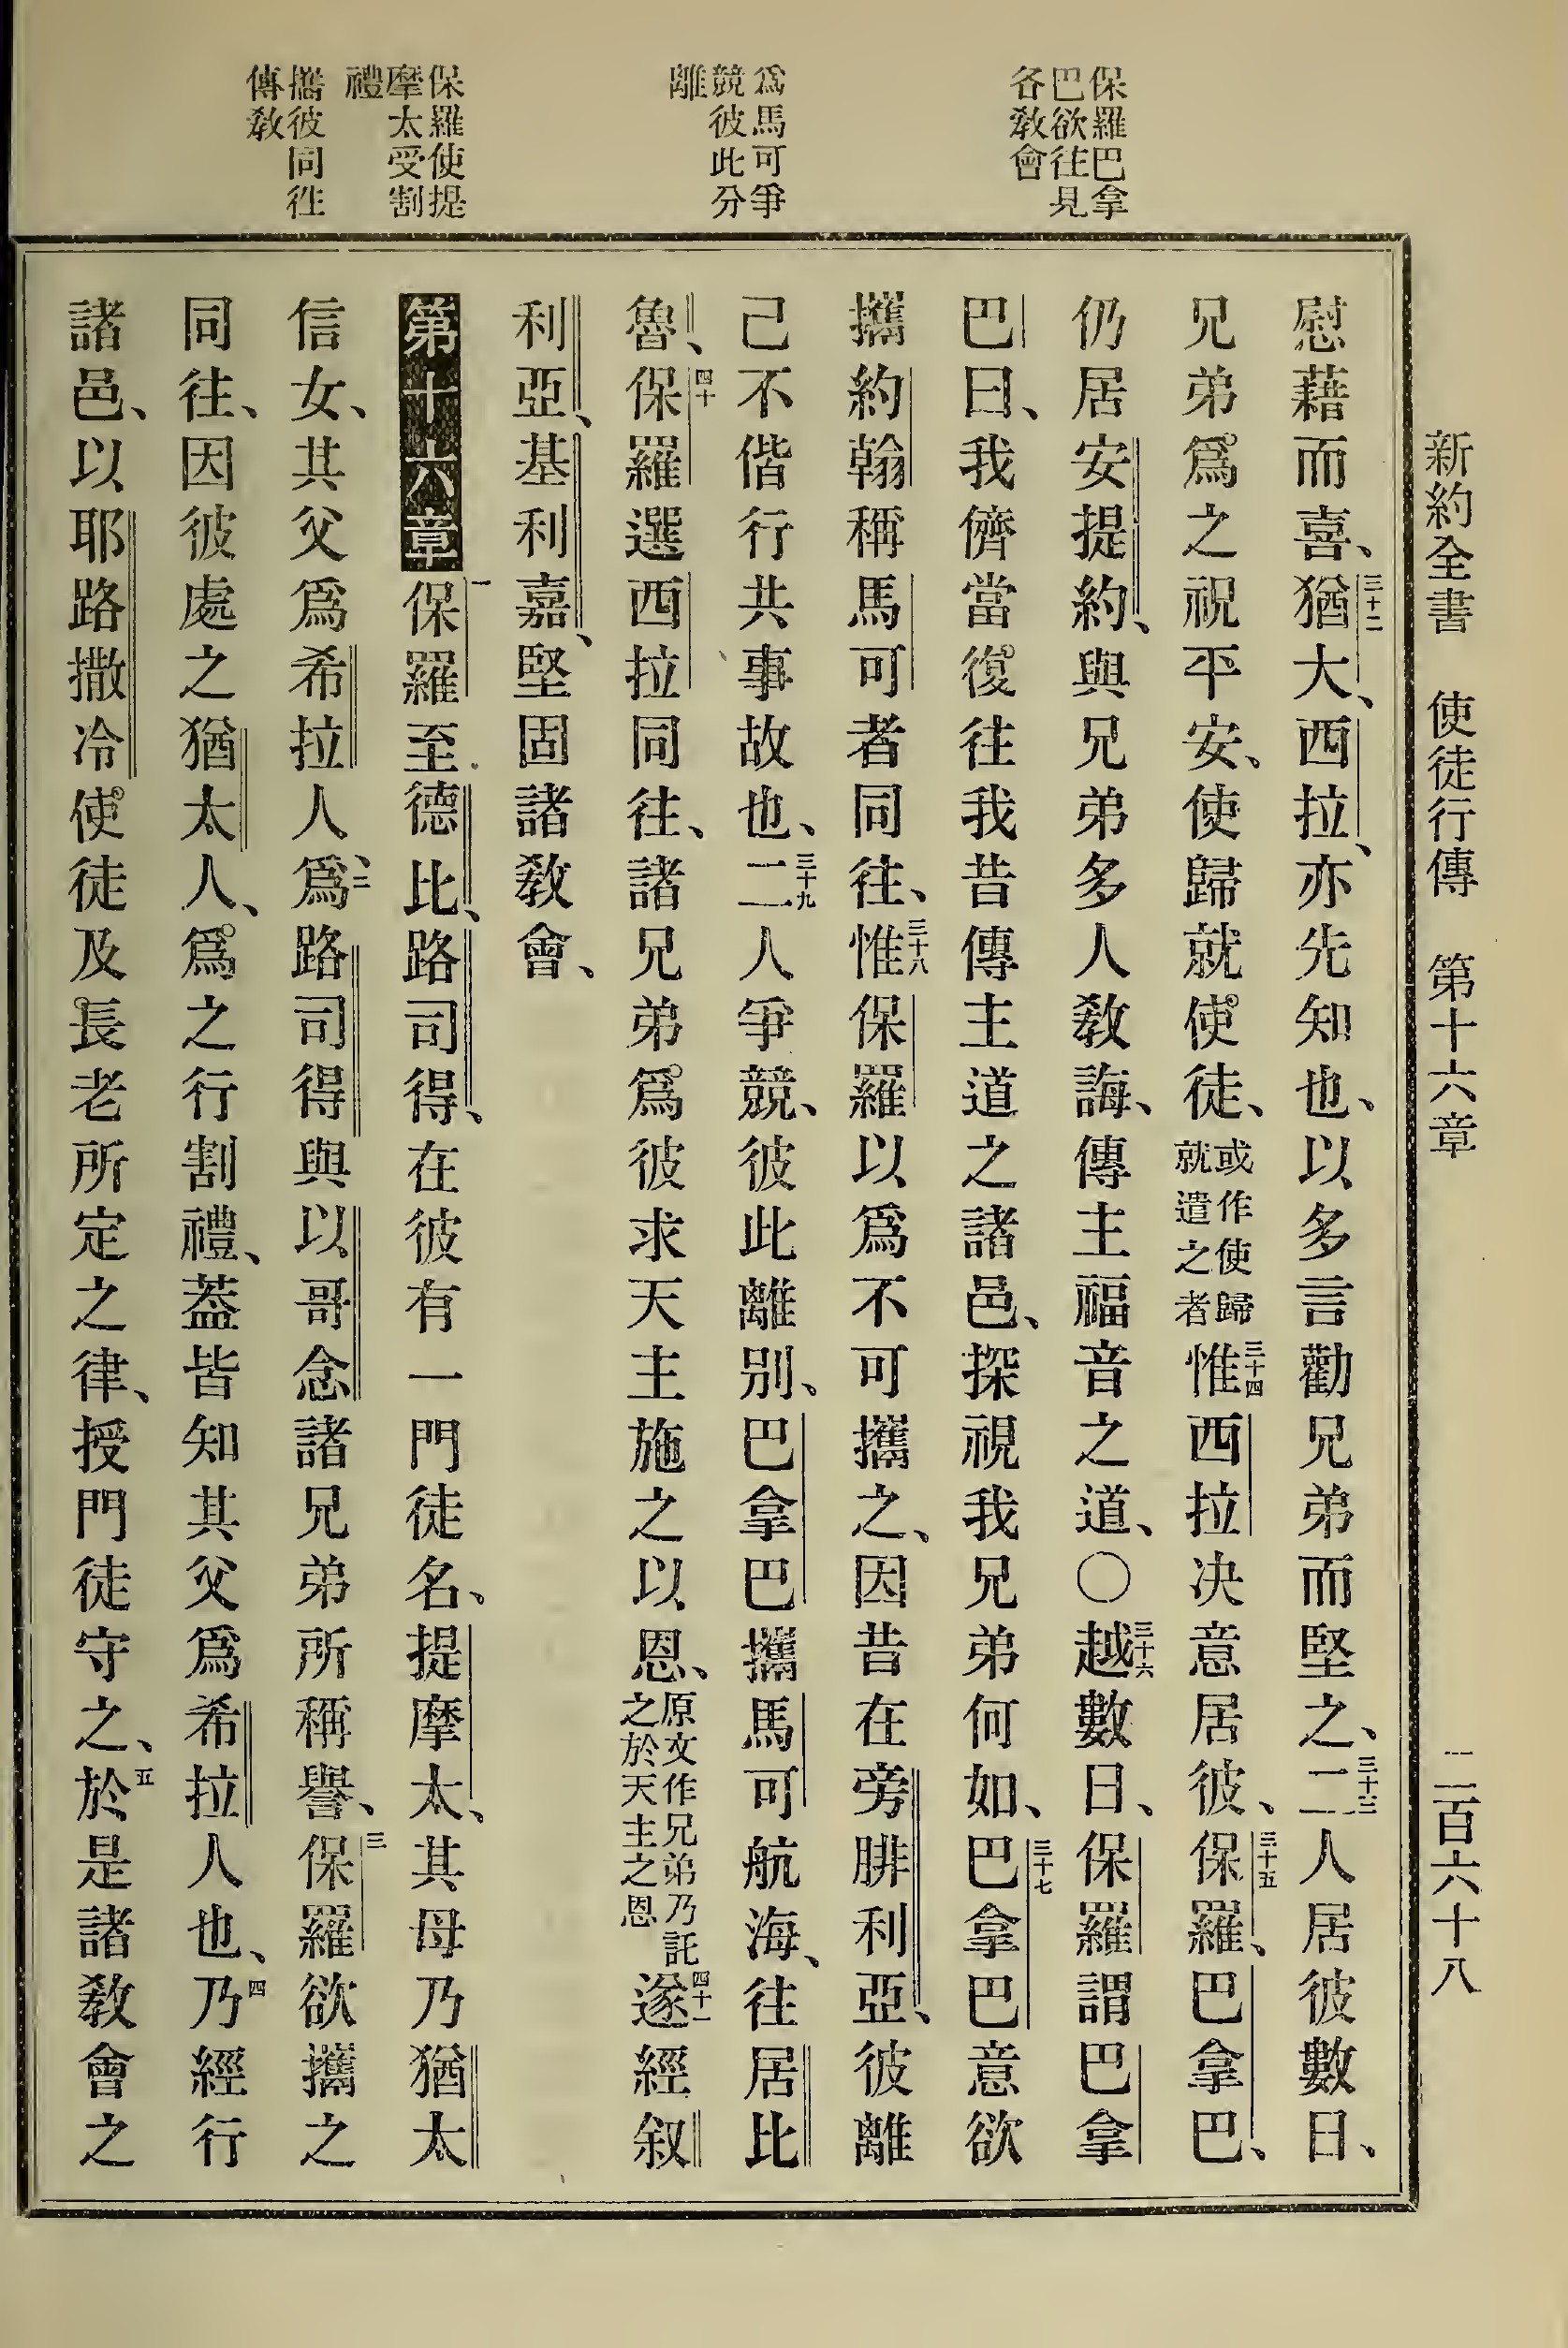 新約全書 使徒行傳 第十六章 二百六十八
保羅巴拿
巴欲往見
各教會
爲馬可爭
競彼此分
離
保羅使提
摩太受割
禮
攜彼同往
傳教
慰藉而喜、三十二猶大、西拉、亦先知也、以多言勸兄弟而堅之、三十三二人居彼數日、
兄弟爲之祝平安、使歸就使徒、或作使歸就遣之者三十四惟西拉決意居彼、三十五保羅、巴拿巴、
仍居安提約、與兄弟多人教誨、傳主福音之道、〇三十六越數日、保羅謂巴拿
巴曰、我儕當復往我昔傳主道之諸邑、探視我兄弟何如、三十七巴拿巴意欲
攜約翰稱馬可者同往、三十八惟保羅以爲不可攜之、因昔在旁腓利亞、彼離
己不偕行共事故也、三十九二人爭競、彼此離別、巴拿巴攜馬可航海、往居比
魯、四十保羅選西拉同往、諸兄弟爲彼求天主施之以恩、原文作兄弟乃託之於天主之恩四十一遂經叙
利亞、基利嘉、堅固諸教會、
第十六章一保羅至德比、路司得、在彼有一門徒名、提摩太、其母乃猶太
信女、其父爲希拉人、二爲路司得與以哥念諸兄弟所稱譽、三保羅欲攜之
同往、因彼處之猶太人、爲之行割禮、葢皆知其父爲希拉人也、四乃經行
諸邑、以耶路撒冷使徒及長老所定之律、授門徒守之、五於是諸教會之